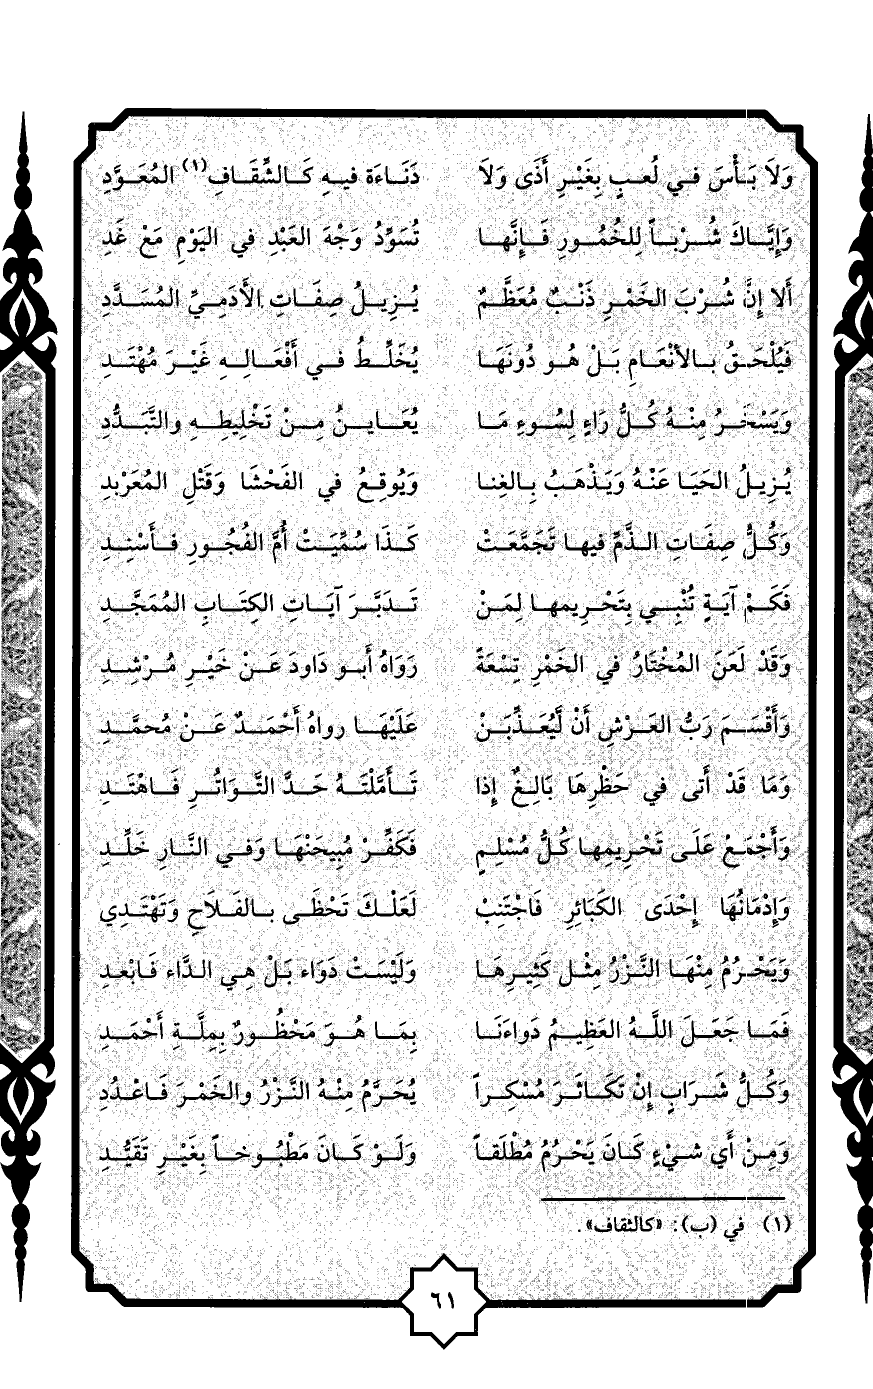 وَلاَ بَأْسَ في لُعبٍ بِغَيْرِ أَذًى وَلاَ دَنَاءَة فيهِ كَالشِّقَافِ(١) المُعَوَّدِ
وَإِيَّاكَ شُرْباً لِلخُمُورِ فَإِنَّها تُسَوِّدُ وَجْهَ العَبْدِ في اليَوْمِ مَعْ غَدِ
أَلا إِنَّ شُرْبَ الخَمْرِ ذَنْبٌ مُعَظَّمٌ يُزِيلُ صِفَاتِ الأَدَمِيِّ المُسَدَّدِ
فَيُلْحَقُ بالأنْعَامِ بَلْ هُو دُونَهَا يُخَلِّطُ في أَفْعَالِهِ غَيْرَ مُهْتَدِ
وَيَسْخَرُ مِنْهُ كُلُّ رَاءٍ لِسُوءِ مَا يُعَايِنُ مِنْ تَخْلِيطِهِ والتَّبَدُّدِ
يُزِيلُ الحَيَا عَنْهُ وَيَذْهَبُ بِالغِنا وَيُوقِعُ في الفَحْشَا وَقَتْلِ المُعَرْبدِ
وَكُلُّ صِفَاتِ الذَّمِّ فيها تَجَمَّعَتْ كَذَا سُمِّيَتْ أُمَّ الفُجُورِ فأَسْنِدِ
فَكَمْ آيَةٍ تُنْبِي بِتَحْرِيمها لِمَنْ تَدَبَّرَ آيَاتِ الكِتَابِ المُمَجَّدِ
وَقَدْ لَعَنَ المُخْتَارُ في الخَمْرِ تِسْعَةً رَوَاهُ أَبو دَاودَ عَنْ خَيْرِ مُرْشِدِ
وَأَقْسَمَ رَبُّ العَرْشِ أَنْ لَيُعَذِّبَنْ عَلَيْهَا رواهُ أَحْمَدٌ عَنْ مُحمَّدِ
وَمَا قَدْ أَتى في حَظْرِهَا بَالِغٌ إِذا تَأَمَّلْتَهُ حَدَّ التَّوَاتُرِ فَاهْتَدِ
وَأَجْمَعُ عَلَى تَحْرِيمِها كُلُّ مُسْلِمٍ فَكَفِّرْ مُبِيحَنْهَا وَفي النَّارِ خَلِّدِ
وَإِدْمَانُهَا إِحْدَى الكَبَائِرِ فَاجْتَنِبْ لَعَلْكَ تَحْظَى بالفَلاَحِ وَتَهْتَدِي
وَيَحْرُمُ مِنْهَا النَّزْرُ مِثْل كَثِيرِهَا وَلَيْسَتْ دَوَاء بَلْ هِي الدَّاء فَابْعدِ
فَمَا جَعَلَ اللَّهُ العَظِيمُ دَواءَنَا بِمَا هُوَ مَحْظُورٌ بِمِلَّةِ أَحْمَدِ
وَكُلُّ شَرَابٍ إِنْ تَكَاثَرَ مُسْكِراً يُحَرَّمُ مِنْهُ النَّزْرُ والخَمْرَ فَاعْدُدِ
وَمِنْ أَي شيْءٍ كَانَ يَحْرُمُ مُطْلَقاً وَلَوْ كَانَ مَطْبُوخاً بِغَيْرِ تَقَيُّدِ
(١) في (ب): «كالثقاف».
٦١